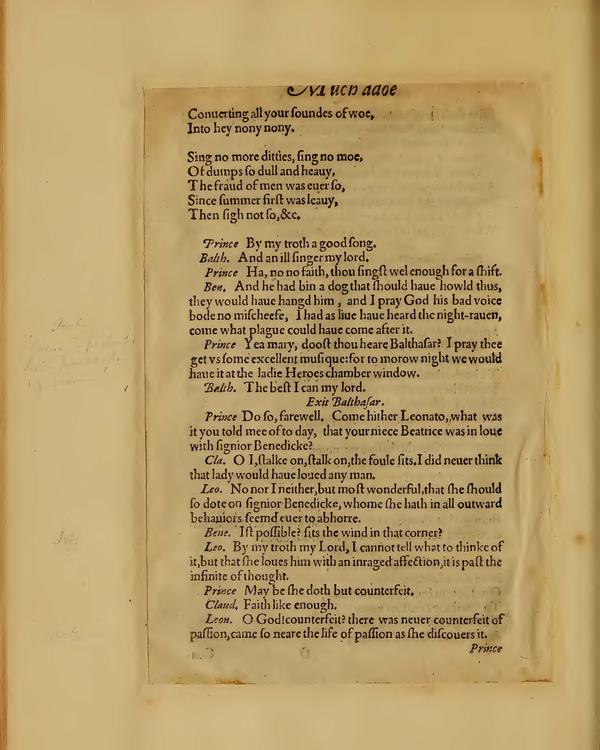 Much adoe
Conuerting all your soundes of woe,
Into hey nony nony.
Sing no more ditties, sing no moe,
Of dumps so dull and heauy,
The fraud of men was euer so,
Since summer first was leauy,
Then sigh not so,&c.
Prince By my troth a good song.
Balth. And an ill singer my lord.
Prince Ha, no no faith, thou singst wel enough for a shift.
Ben. And he had bin a dog that should haue howld thus,
they would haue hangd him, and I pray God his bad voice
bode no mischeefe, I had as liue haue heard the night-rauen,
come what plague could haue come after it.
Prince Yea mary, doost thou heare Balthasar? I pray thee
get vs some excellent musique: for to morow night we would
haue it at the ladie Heroes chamber window.
Balth. The best I can my lord.
Exit Balthasar.
Prince Do so, farewell. Come hither Leonato, what was
it you told mee of to day, that your niece Beatrice was in loue
with signior Benedicke?
Cla. O I, stalke on, stalk on, the foule sits. I did neuer think
that lady would haue loued any man.
Leo. No nor I neither, but most wonderful, that she should
so dote on signior Benedicke, whome she hath in all outward
behauiors seemd euer to abhorre.
Bene. Ist possible? sits the wind in that corner?
Leo. By my troth my Lord, I cannot tell what to thinke of
it, but that she loues him with an inraged affection, it is past the
infinite of thought.
Prince May be she doth but counterfeit.
Claud. Faith like enough.
Leon. O God! counterfeit? there was neuer counterfeit of
passion, came so neare the life of passion as she discouers it.
Prince